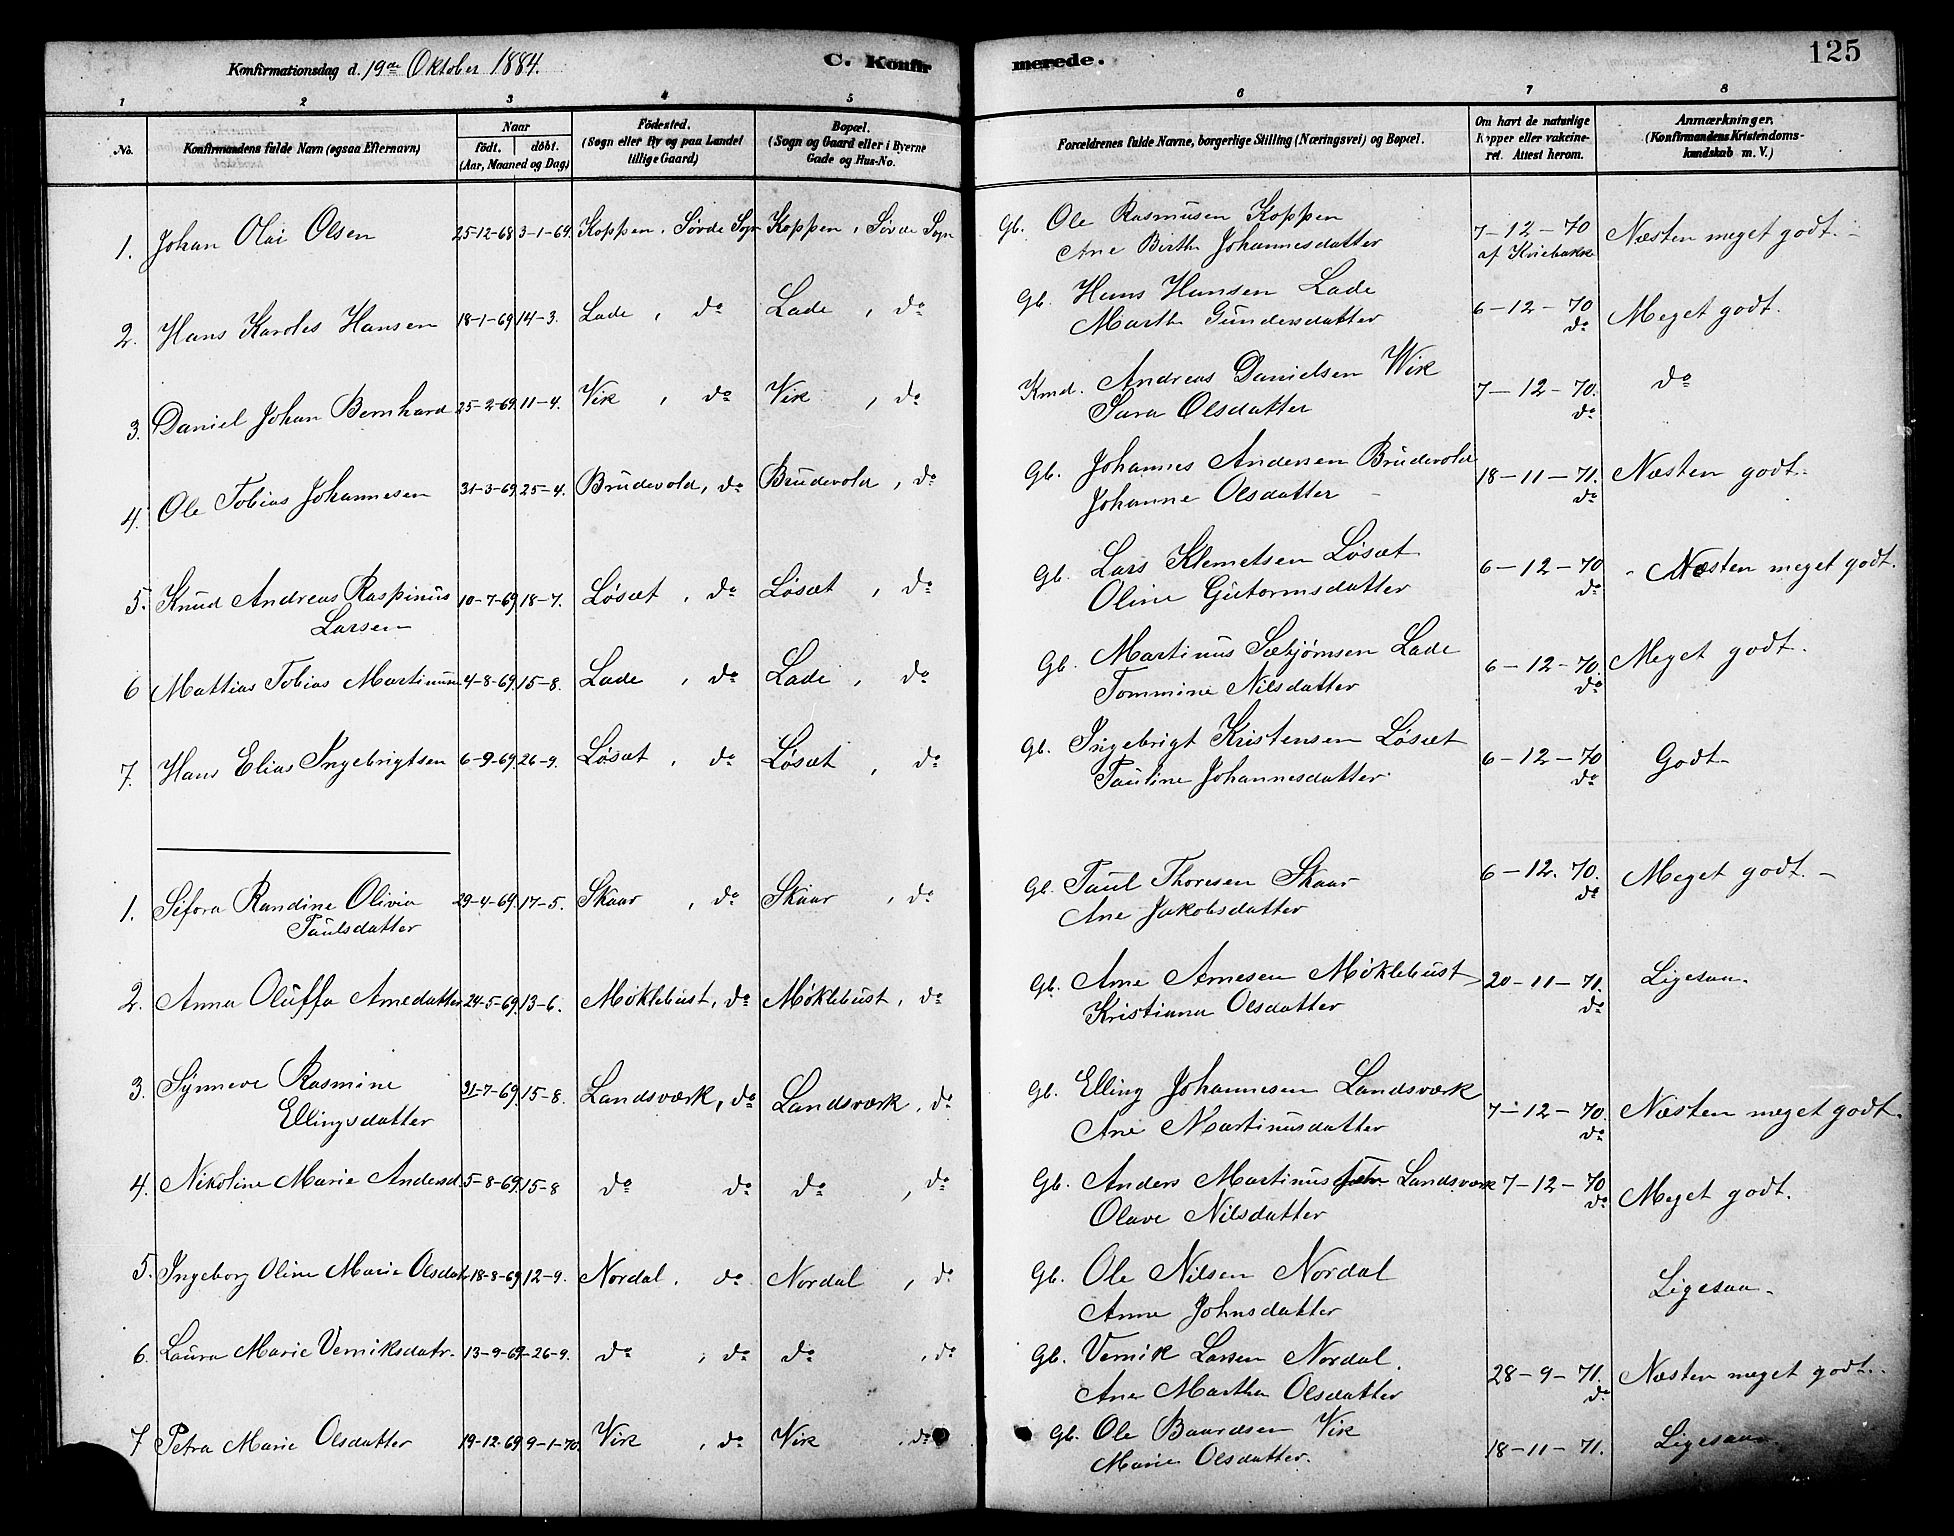 Konfirmationsdag d. 19de Oktober 1884.
C. Konfirmerede.
125
1 2 3 4 5 6 7 8
No.
Konfirmandens fulde Navn (ogsaa Efternavn)
Naar
födt. döbt.
(Aar, Maaned og Dag)
Födested.
(Sogn eller By og paa Landet
tillige Gaard)
Bopæl.
(Sogn og Gaard eller i Byerne
Gade og Hus-No.
Forældrenes fulde Navne, borgerlige Stilling (Næringsvei) og Bopæl.
Om havt de naturlige
Kopper eller vakcine-
ret. Attest herom.
Anmærkninger.
(Konfirmandens Kristendoms-
kundskab m. V.)
1. Johan Olai Olsen 25-12-68 3-1-69. Koppen, Søvde Sogn Koppen, Søvde Sogn Gb. Ole Rasmusen Koppen 7-12-70 Næsten meget godt.
Ane Birthe Johannesdatter af Kviebakke
2. Hans Karoles Hansen 18-1-69 14-3. Lade, do Lade, do Gb. Hans Hansen Lade 6-12-70 Meget godt.
Marthe Gundersdatter do
3. Daniel Johan Bernhard 25-2-69 11-4. Vik, do Vik, do Kmd. Andreas Danielsen Wik 7-12-70. do
Sara Olsdatter do
4. Ole Tobias Johannesen 31-3-69. 25-4. Brudevold, do Brudevold, do Gb. Johannes Andersen Brudevold 18-11-71. Næsten godt.
Johanne Olsdatter do
5. Knud Andreas Raspinus 10-7-69. 18-7. Løsæt, do Løsæt, do Gb. Lars Klemetsen Løsæt 6-12-70 Næsten meget godt.
Larsen Oline Guttormsdatter do
6 Mattias Tobias Martinusen 4-8-69. 15-8. Lade, do Lade, do Gb. Martinus Sæbjørnsen Lade 6-12-70. Meget godt.
Tommine Nilsdatter do
7. Hans Elias Ingebrigtsen 6-9-69. 26-9. Løsæt, do Løsæt, do Gb. Ingebrigt Kristensen Løsæt 6-12-70 Godt
Pauline Johannesdatter do
1. Sefora Randine Olivia 29-4-69. 17-5. Skaar, do Skaar, do Gb. Paul Thoresen Skaar 6-12. 70. Meget godt.
Paulsdatter Ane Jakobsdatter do
2. Anna Oluffa Arnedatter 24-5-69. 13-6. Møklebust, do Møklebust, do Gb. Arne Arnesen Møklebust 20-11-71. Ligesaa.
Kristiana Olsdatter do
3. Synneve Rasmine 21-7-69. 15-8. Landsværk, do Landsværk, do Gb. Elling Johannesen Landsværk 7-12-70. Næsten meget godt.
Ellingsdatter Ane Martinusdatter do
4. Nikoline Marie Andersd. 5-8-69. 15-8 do do do, do Gb. Anders Martinus Landsværk 7-12-70 Meget godt.
Olave Nilsdatter do
5. Ingeborg Oline Marie Olsdatr 18-8-69 12-9. Nordal, do Nordal, do Gb. Ole Nilsen Nordal Ligesaa.
Anne Johnsdatter
6. Laura Marie Verniksdatr. 13-9-69 26-9. do, do do, do Gb. Vernik Larsen Nordal. 28-9-71. Næsten meget godt.
Ane Martha Olsdatter do
7 Petra Marie Olsdatter 19-12-69 9-1-70. Vik, do Vik, do Gb. Ole Baardsen Vik 18-11-71. Ligesaa.
Marie Olsdatter.